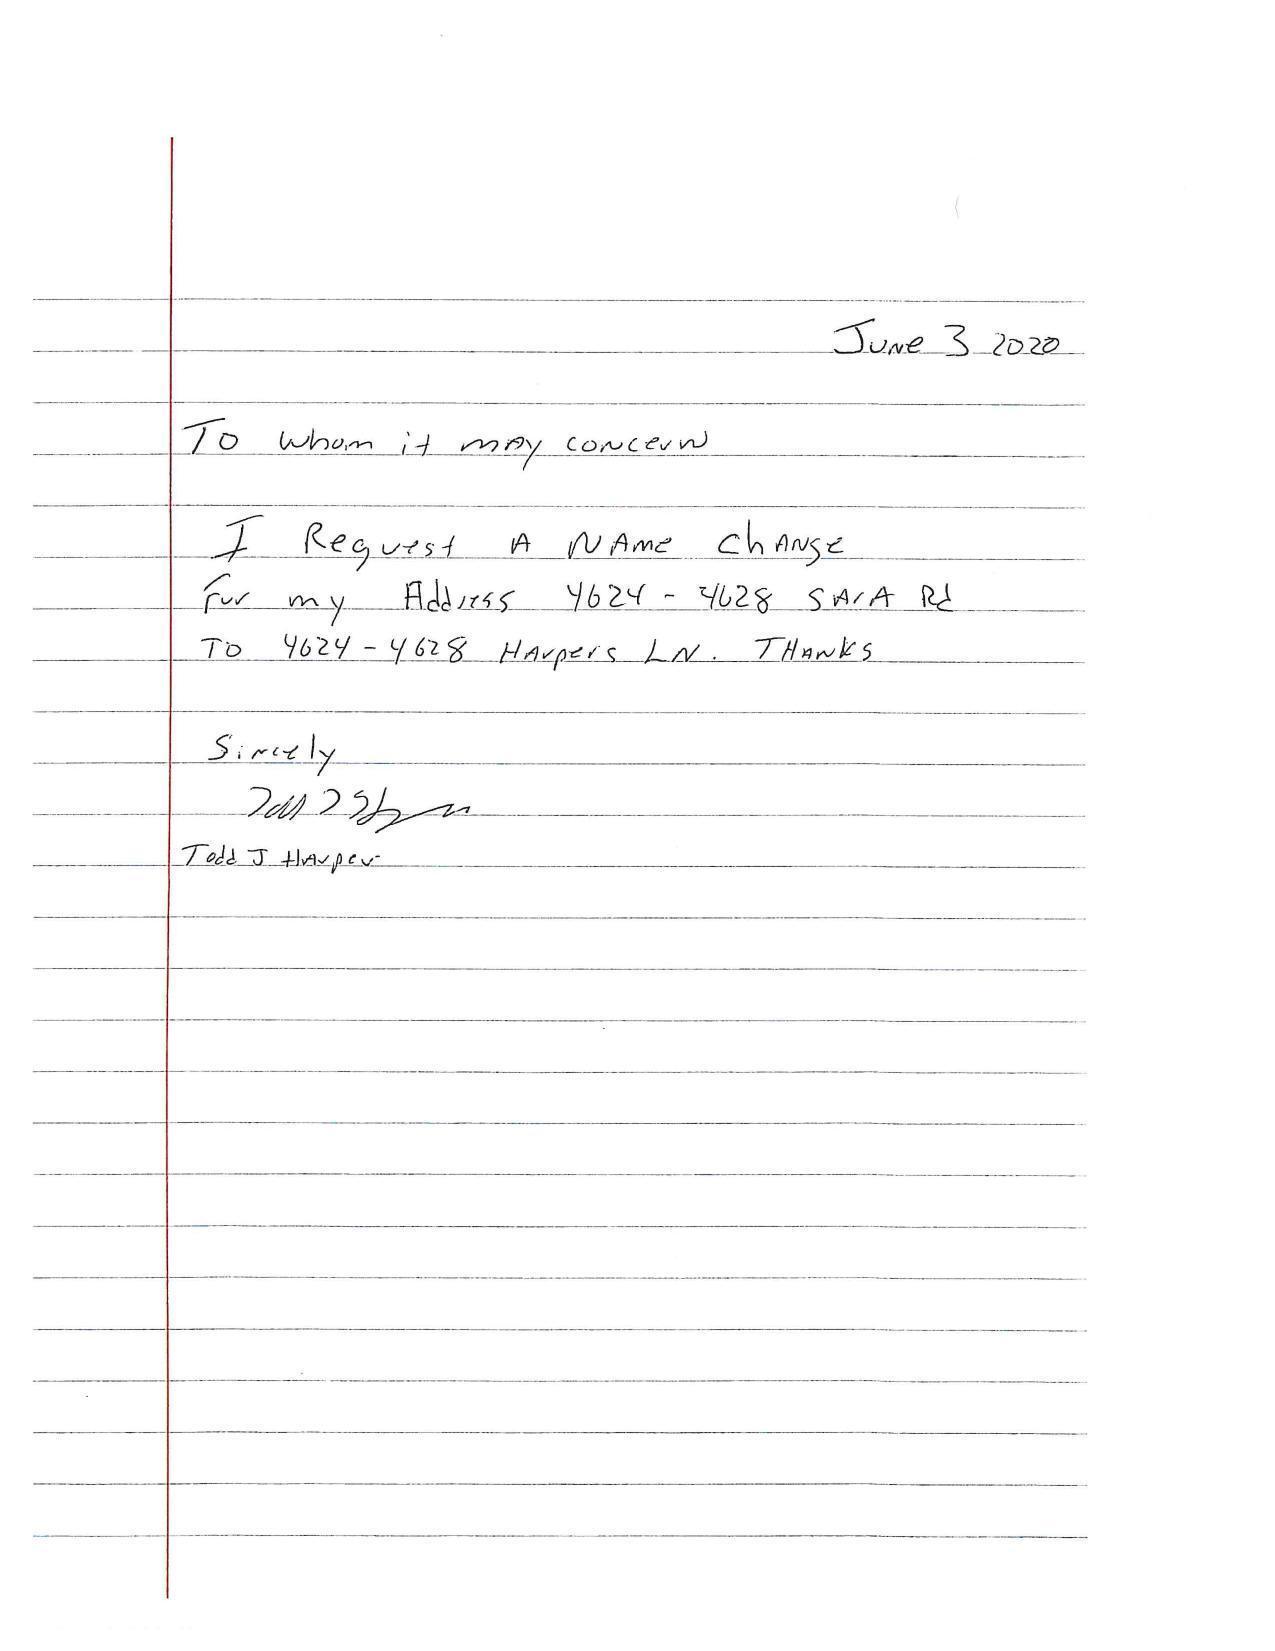 June 3 2020
To whom it may concern
I Request A NAme ChANge
For my Address 4624 - 4628 SAIA Rd
TO 4624 - 4628 HArpers LN. THANKS
Sincely
Todd J HArper